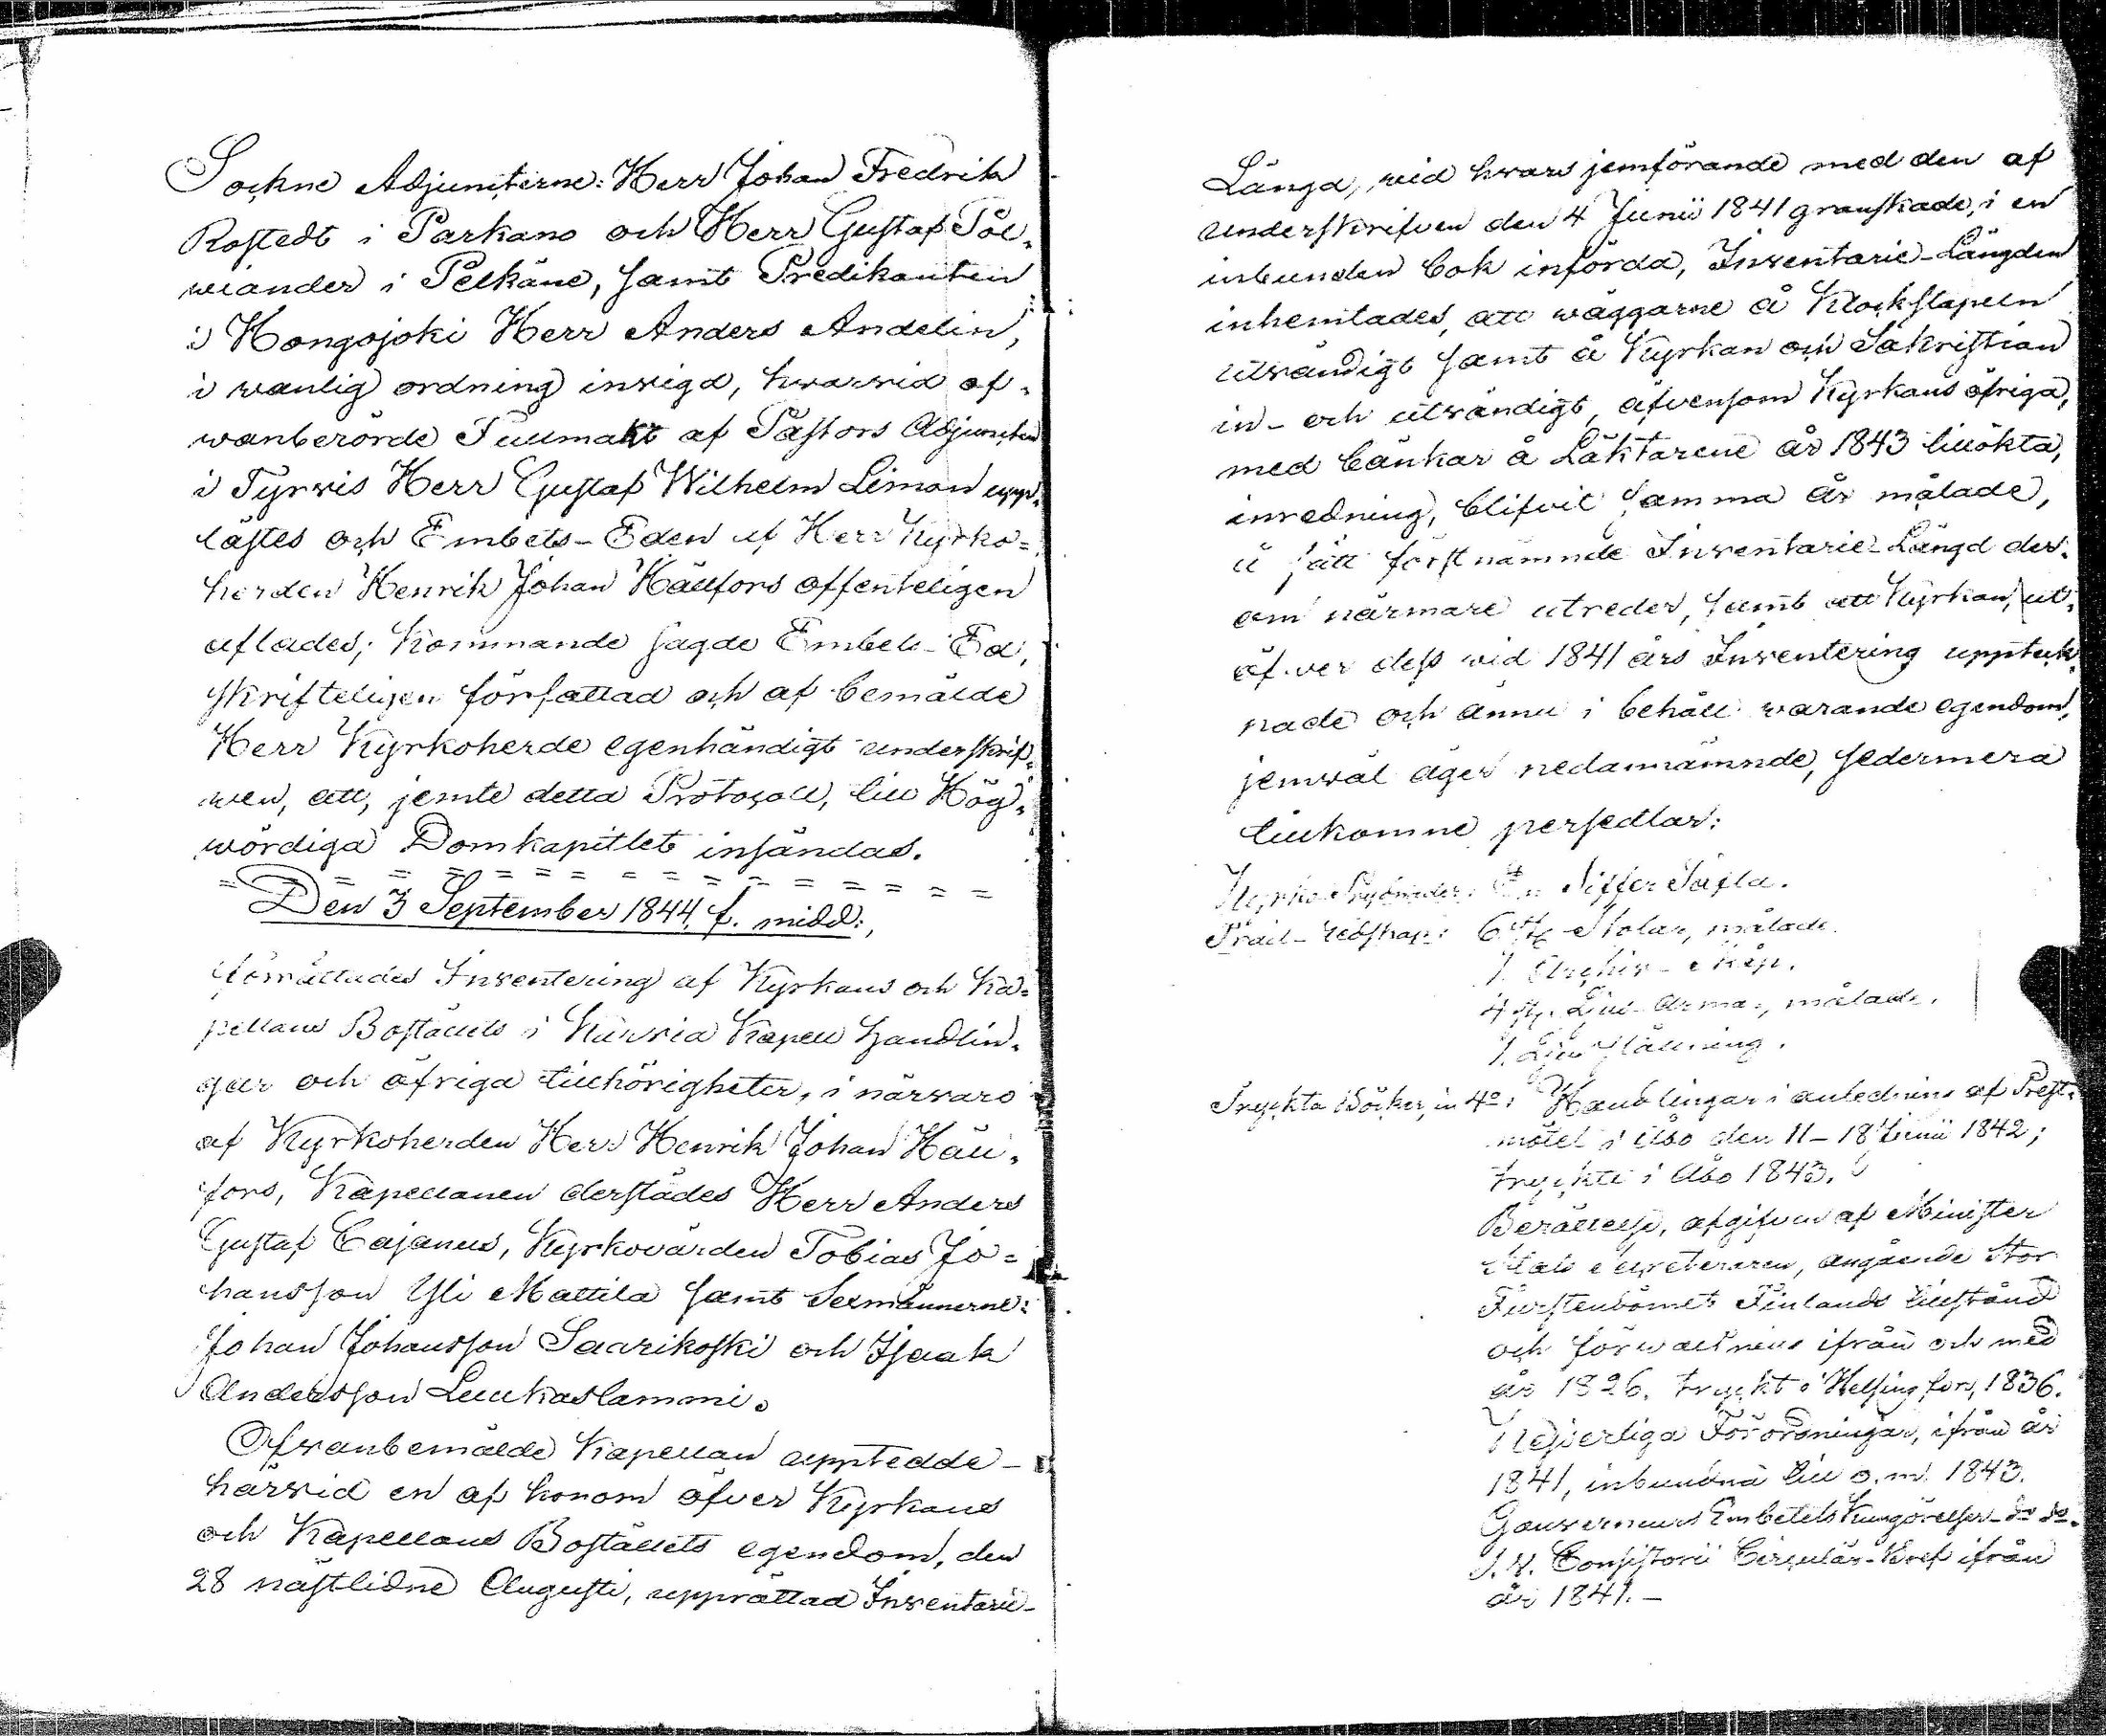 Sockne Adjuncterne: Herr Johan Fredrik
Rostedt i Parkano och Herr Gustaf Pol-
viander i Pelkäne, samt Predikanten
i Hongojoki Herr Anders Andelin,
i wanlig ordning invigd, hwarvid of-
wanberörde Fullmakt af Pastors Adjuncten
i Tyrvis Herr Gustaf Wilhelm Liman upp-
lästes och Embets-Eden af Herr Kyrko-
herden Henrik Johan Hällfors offenteligen
aflades; kommande sagde Embets-Ed,
skrifteligen författad och af bemälde
Herr Kyrkoherde egenhändigt underskrif-
wen, att, jemte detta Protocoll, till Hög-
wördiga Domkapitlet insändas.
Den 3 September 1844, f. midd:,
förrättades Inventering af Kyrkans och Ka-
pellans Boställets i Kurvia Kapell handlin-
gar och öfriga tillhörigheter, i närvaro
af Kyrkoherden Herr Henrik Johan Häll-
fors, Kapellanen derstädes Herr Anders
Gustaf Cajanus, Kyrkovärden Tobias Jo-
hansson Yli Mattila samt Sexmännerne:
Johan Johansson Saarikoski och Isaak
Andersson Luukaslammi.
Ofvanbemälde Kapellan upptedde
härvid en af honom öfver Kyrkans
och Kapellans Boställets egendom, den
28 nästlidne Augusti, upprättad Inventarie-
Längd, vid hvars jemförande med den af
underskrifven den 4 Junii 1841 granskade, i en
inbunden bok införda, Inventarie-Längden
inhemtades, att wäggarne å Klockstapeln
utvändigt samt å Kyrkan och Sakristian
in- och utvändigt, äfvensom Kyrkans öfriga,
med bänkar å Läktarene år 1843 tillökta,
inredning, blifvit samma år målade,
å sätt förstnämnde Inventarie-Längd der-
om närmare utreder, samt att Kyrkan, ut-
öfver dess vid 1841 års Inventering uppteck-
nade och ännu i behåll warande egendom,
jemväl äger nedannämnde, sedermera
tillkomne persedlar:
Kyrko-Prydnader: En Siffer Tafla.
Träd-redskap: 6 st. Stolar, målade.
1. Archiv-Skåp.
4 st. Ljus-Armar, målade.
1. Ljus Ställning.
Tryckta Böcker, in 4o: Handlingar i anledning af Prest-
mötet i Åbo den 11-18 Junii 1842;
tryckte i Åbo 1843.
Berättelse, afgifven af Minister
Stats Secreteraren, angående Stor
Furstendömet Finlands tillstånd
och förwaltning ifrån och med
år 1826. tryckt i Helsingfors, 1836.
Kejserliga Förordningar, ifrån år
1841, inbundna till o. m. 1843.
Gouverneurs Embetets Kungörelser do do.
Consistorii Circulär-Bref ifrån
år 1841.-